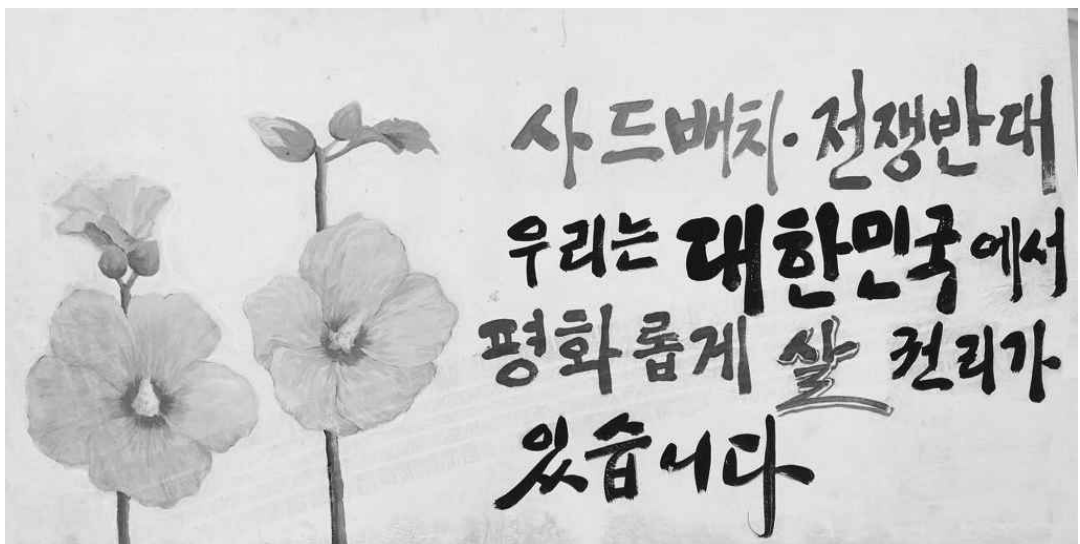 사드배치·전쟁반대
우리는 대한민국에서
평화롭게 살 권리가
있습니다